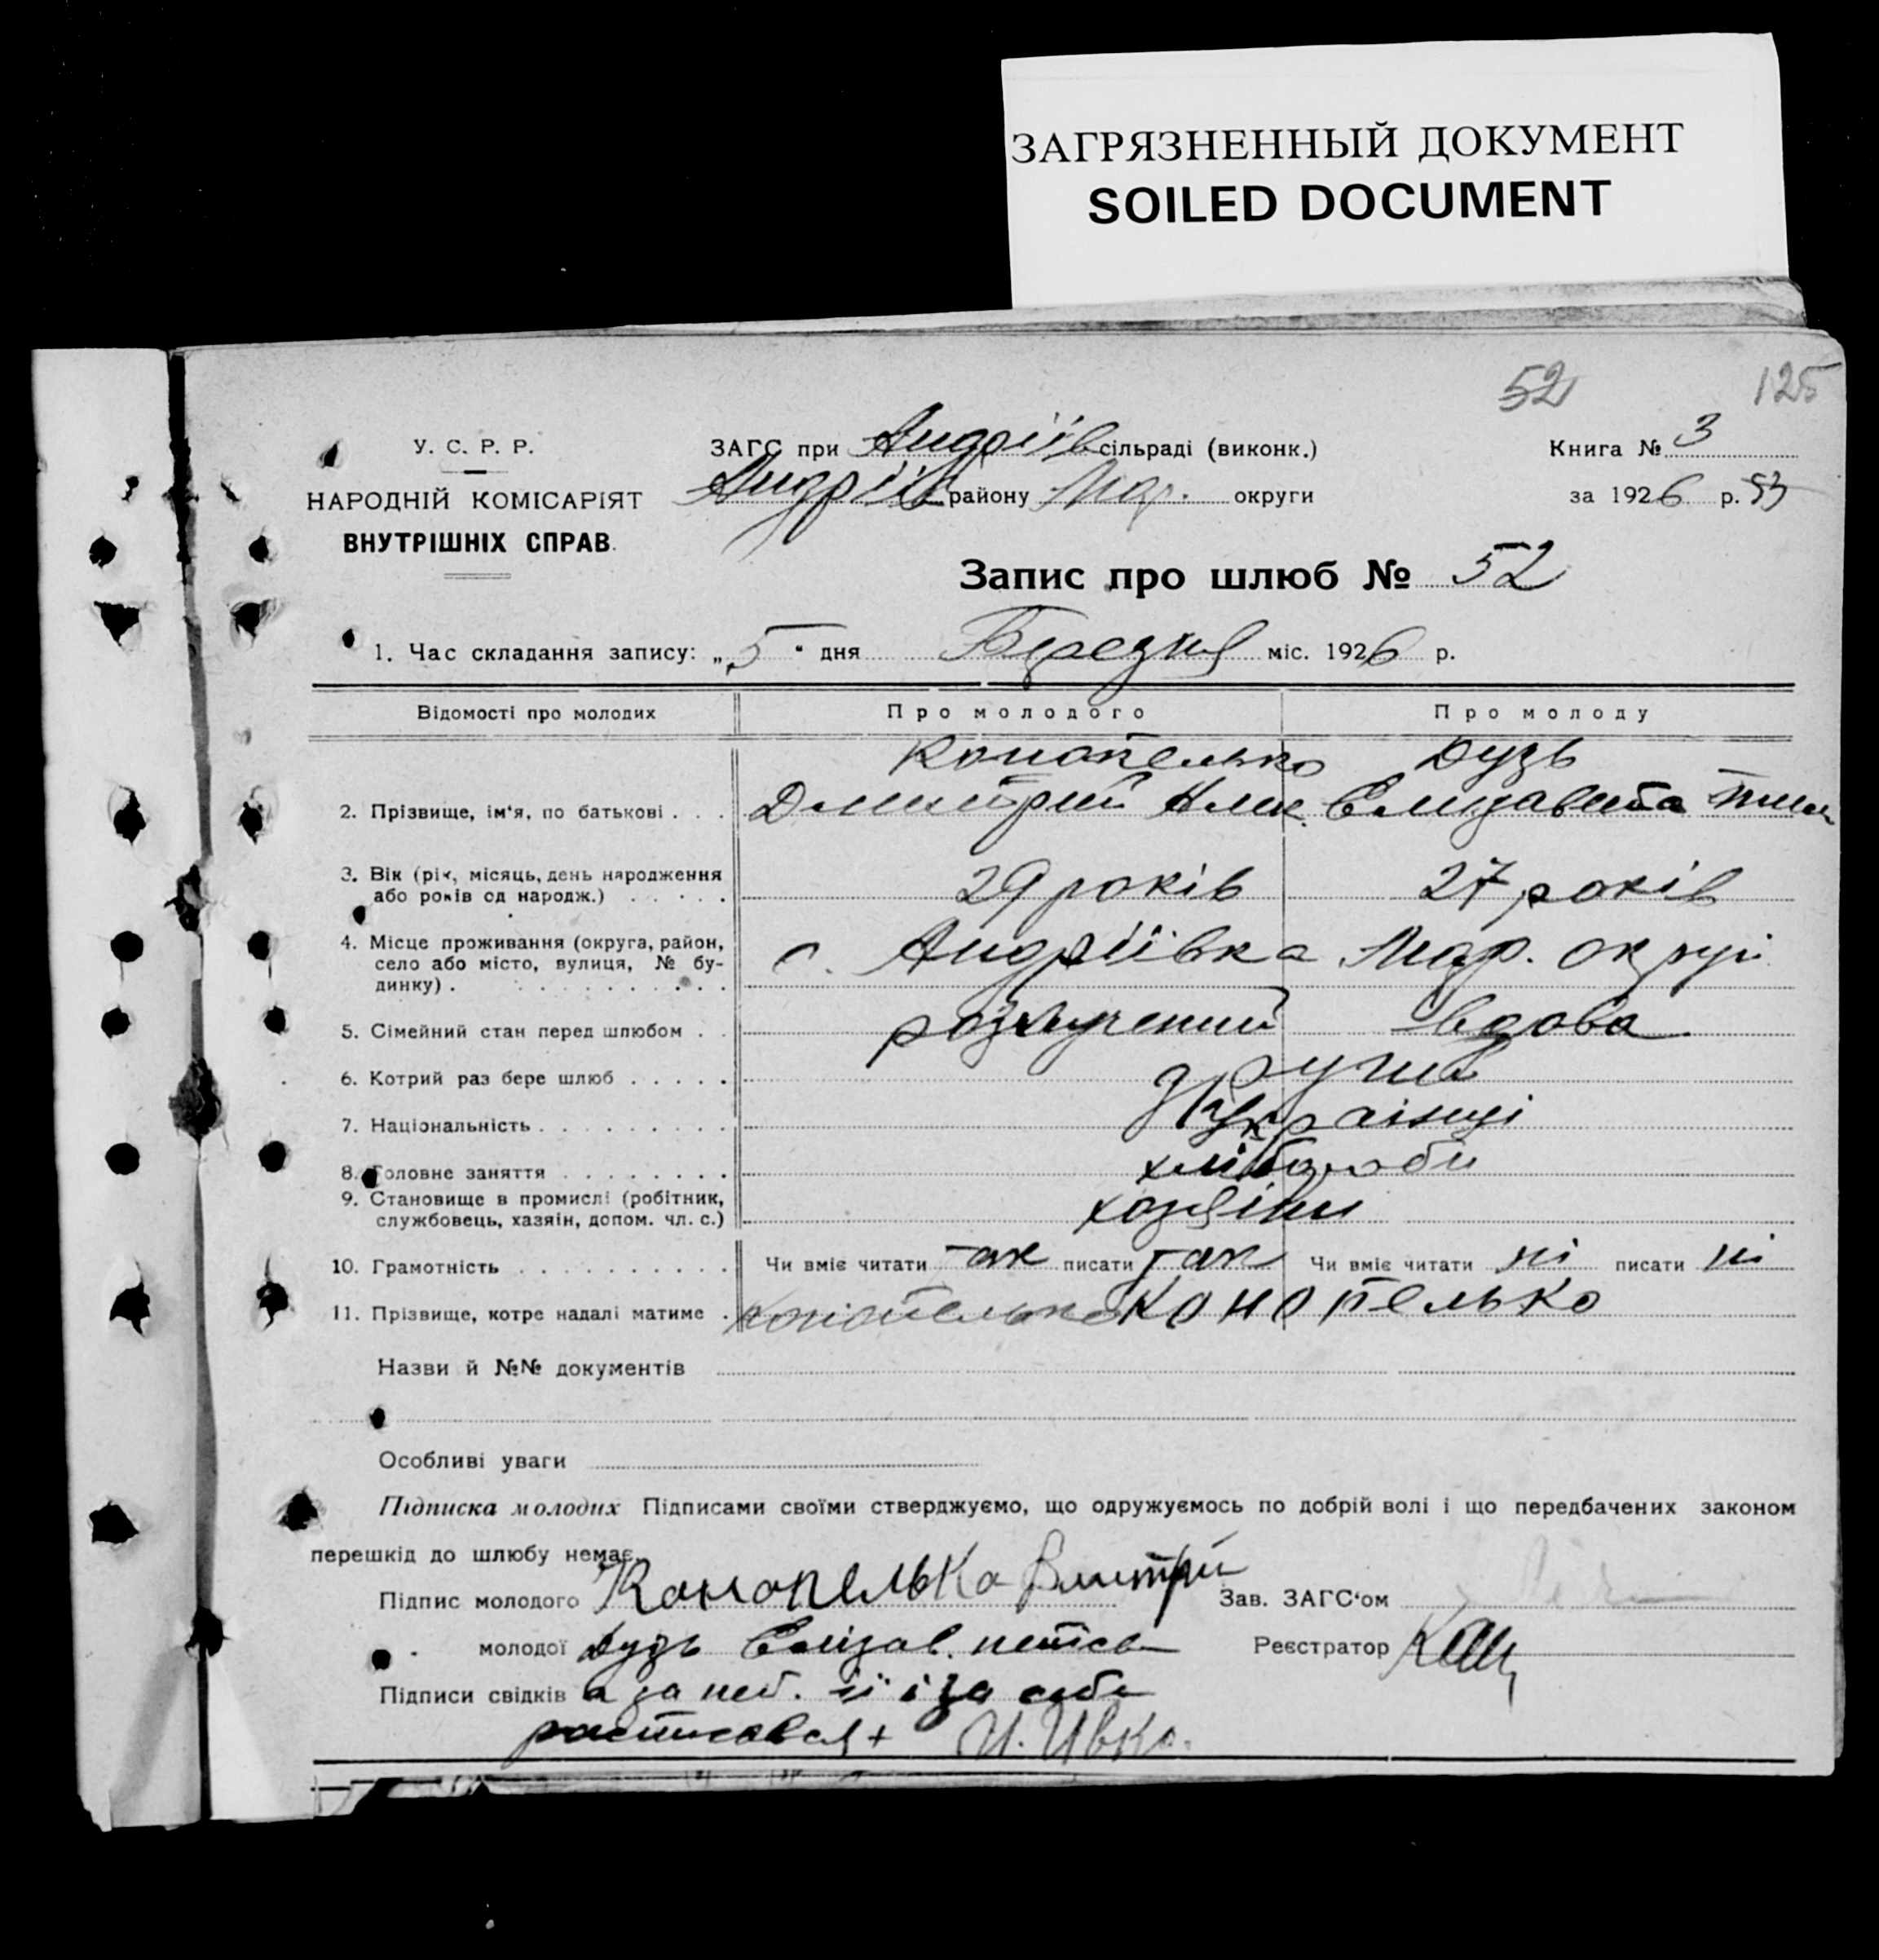 ЗАГРЯЗНЕННЫЙ ДОКУМЕНТ
SOILED DOCUMENT
52 125
У. С. Р. Р.
НАРОДНІЙ КОМІСАРІЯТ
ВНУТРІШНІХ СПРАВ.
ЗАГС при Андріїв сільраді (виконк.)
Андріїв району Мар. округи
Книга № 3
за 1926 р. 53
Запис про шлюб № 52
1. Час складання запису: „5" дня Березня міс. 1926 р.
Відомості про молодих Про молодого Про молоду
Конопелько Дузь
2. Прізвище, ім'я, по батькові . . . Дмитрий Елизавета
3. Вік (рік, місяць, день народження
або років од народж.) . . . . . 29 років 27 років
4. Місце проживання (округа, район, с. Андріївка Мар. округи
село або місто, вулиця, № бу-
динку) . . . . . . . . . . .
5. Сімейний стан перед шлюбом . . розлучений вдова
6. Котрий раз бере шлюб . . . . . другий
7. Національність . . . . . . . . . Українці
8. Головне заняття . . . . . . . . хлібороби
9. Становище в промислі (робітник,
службовець, хазяїн, допом. чл. с.) хозяїни
10. Грамотність . . . . . . . . . . Чи вміє читати так писати так Чи вміє читати ні писати ні
11. Прізвище, котре надалі матиме . Конопелько Конопелько
Назви й №№ документів
Особливі уваги
Підписка молодих Підписами своїми стверджуємо, що одружуємось по добрій волі і що передбачених законом
перешкід до шлюбу немає.
Підпис молодого Конопелько Дмитрий Зав. ЗАГС'ом
" молодої Дузь Елізав. Реєстратор
Підписи свідків а за її і за себе
расписался + И. Ивко.